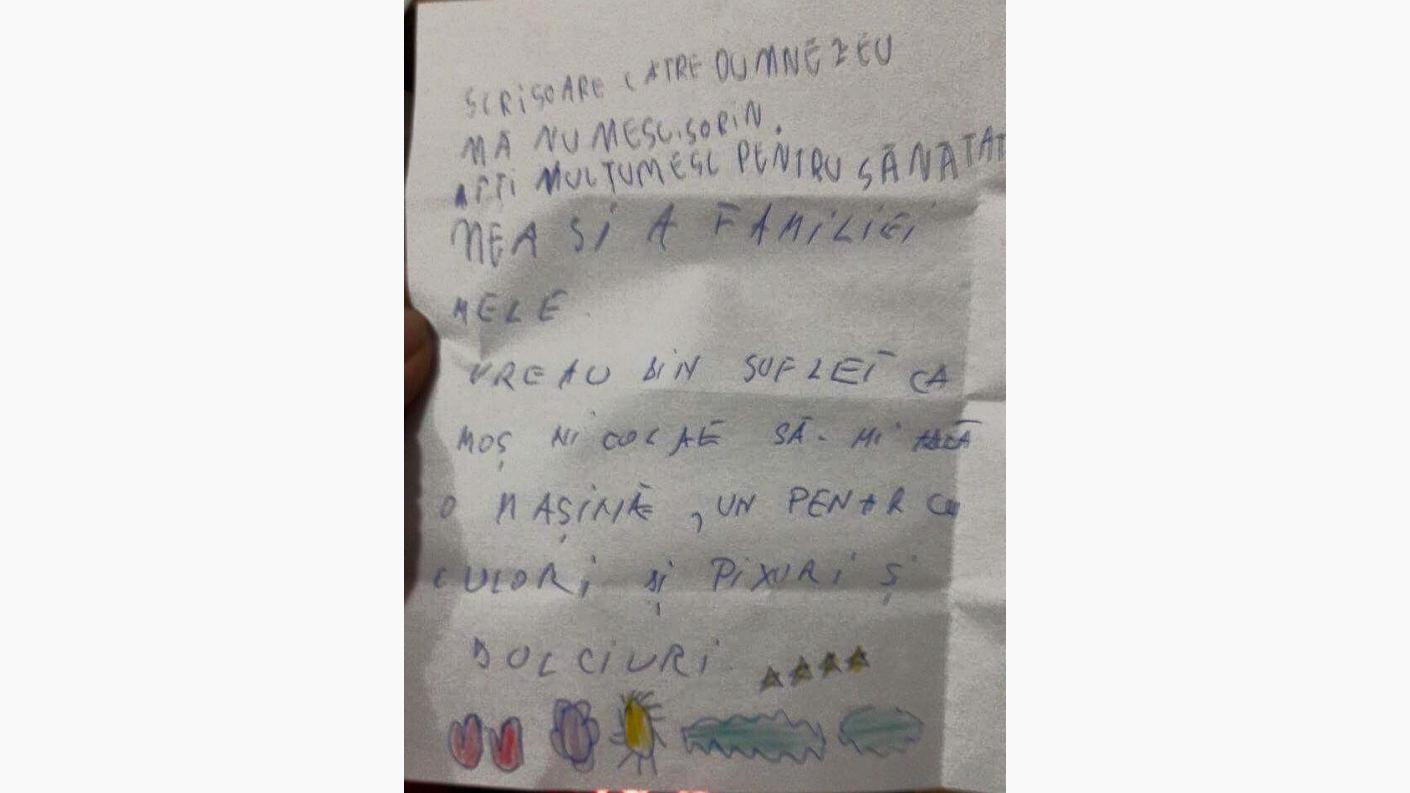 SCRISOARE CĂTRE DUMNEZEU
MĂ NUMESC SORIN.
MULȚUMESC PENTRU SĂNĂTAT
MEA SI A FAMILIEI
MELE.
VREAU DIN SUFLET CA
MOȘ NICOLAE SĂ-MI
O MAȘINĂ, UN PENAR CU
CULORI ȘI PIXURI ȘI
DOLCIURI.